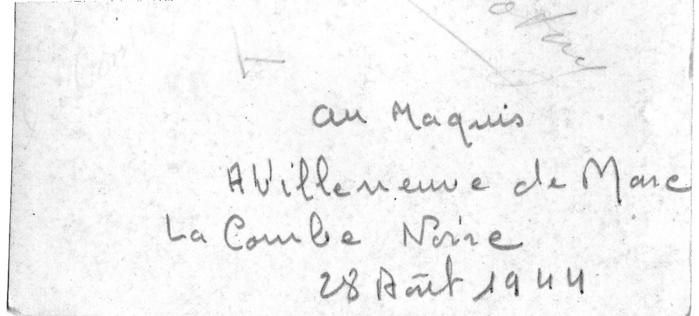 au Maquis
A Villeneuve de Marc
La Combe Noire
28 Août 1944